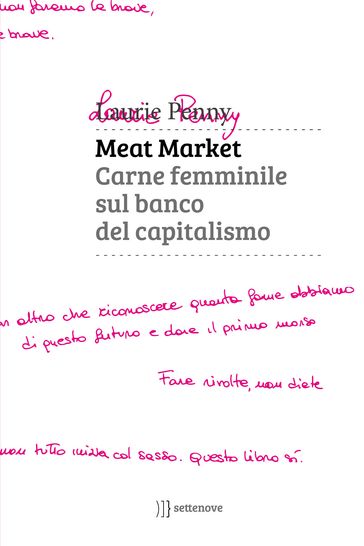 non faremo le brave,
e brave.
Laurie Penny
Laurie Penny
Meat Market
Carne femminile
sul banco
del capitalismo
altro che riconoscere quanta fame abbiamo
di questo futuro e dare il primo morso
Fare rivolte, non diete
non tutto inizia col sasso. Questo libro sì.
)]} settenove